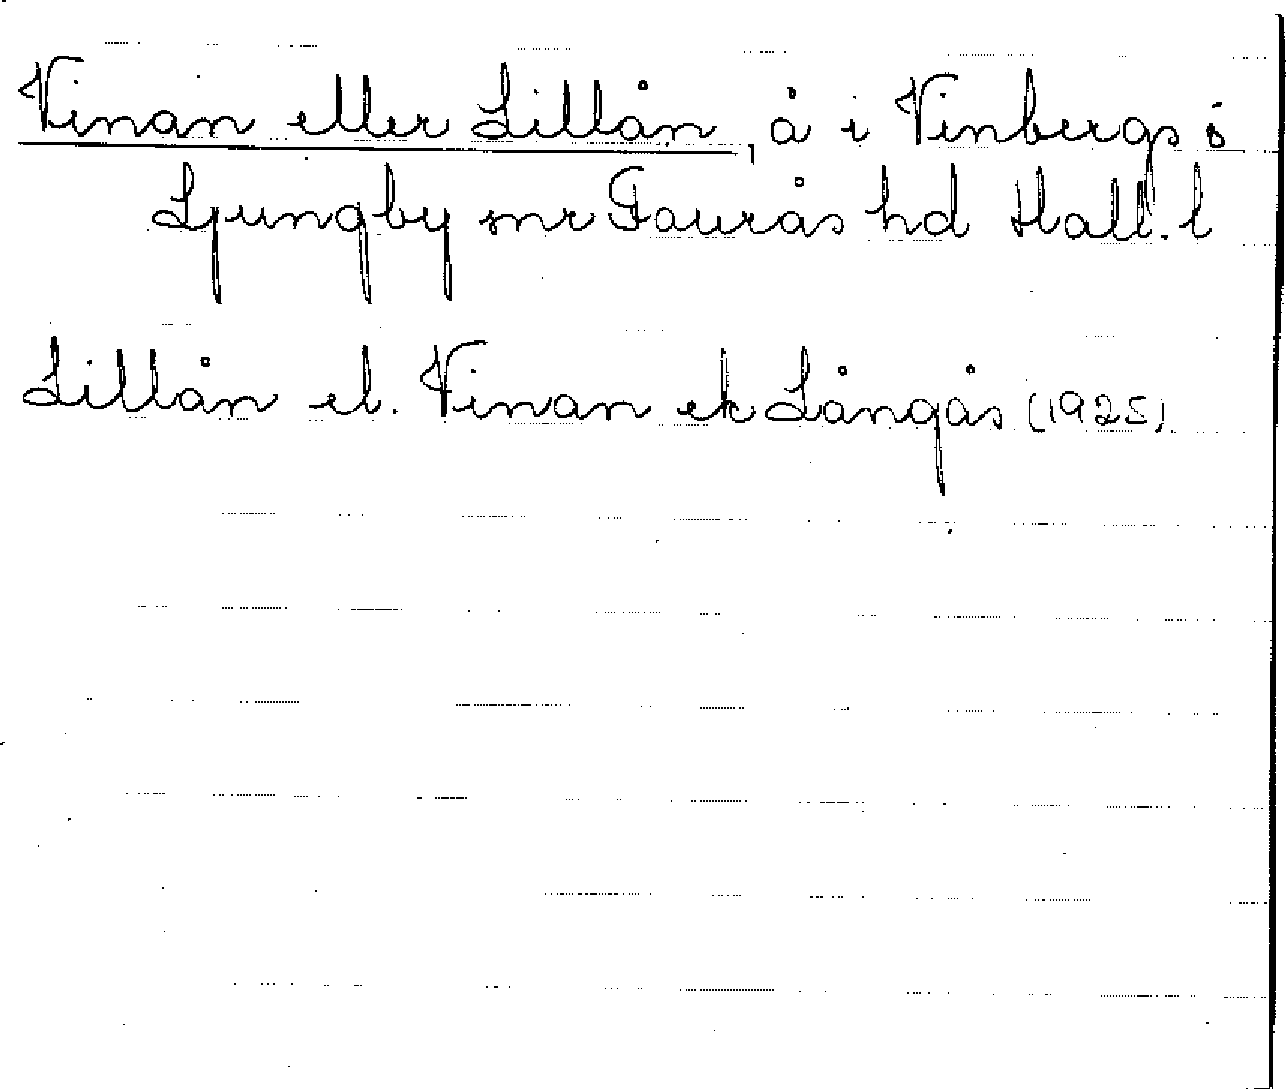 Vinån eller Lillån, å i Vinbergs o
Ljungby snr Faurås hd Hall. l
Lillån el. Vinan ek Långås (1925)